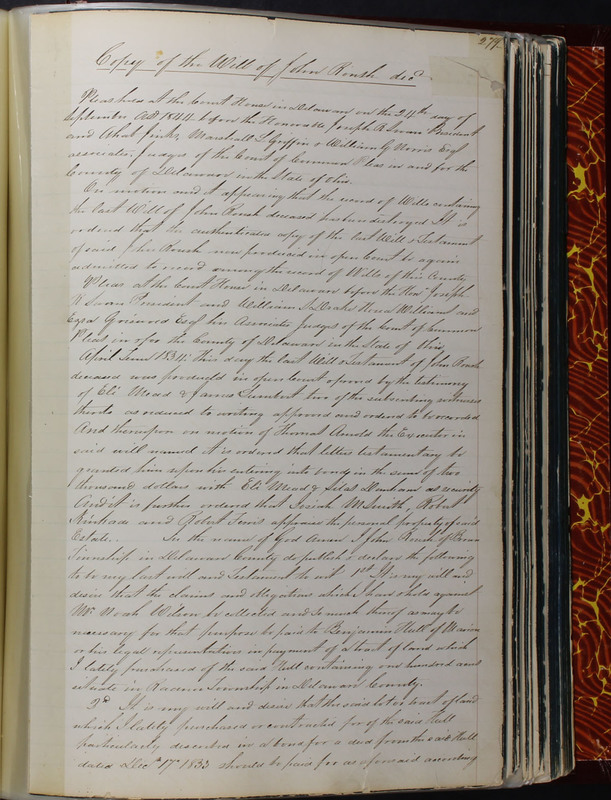 277
Copy of the Will of John Roush decd.
Pleas held at the Court House in Delaware on the 24th day of
September AD 1844 before the Honorable Joseph R Swan President
and Ahab Jinks, Marshall L Griffin & William G Norris Esqs
associate Judges of the Court of Common Pleas in and for the
County of Delaware in the State of Ohio.
On motion and it appearing that the record of Wills containing
the last Will of John Roush deceased has been destroyed It is
ordered that an authenticated copy of the last Will & Testament
of said John Roush now produced in open Court be again
admitted to record among the record of Wills of this County
Pleas at the Court House in Delaware before the Hon. Joseph
R Swan President and William S. Drake Hosea Williams and
Ezra Griswold Esqs his Associate Judges of the Court of Common
Pleas in & for the County of Delaware in the State of Ohio
April Term 1834: this day the last Will & Testament of John Roush
deceased was produced in open Court & proved by the testimony
of Eli Mead & James two of the subscribing witnesses
thereto as ordered to writing approved and ordered to be recorded
And thereupon on motion of Thomas Arnold the Executor in
said will named it is ordered that letters testamentary be
granted him upon his entering into bonds in the sum of two
thousand dollars with Eli Mead & Silas Dunham as security
And it is further ordered that Josiah M Smith, Robert
Kinkade and Robert Lewis appraise the personal property of said
Estate. In the name of God Amen I John Roush of
Township in Delaware County do publish & declare the following
to be my last will and Testament to wit 1st It is my will and
desire that the claims and obligations which I have & hold against
Mr. Noah Wilson be collected and so much thereof as may be
necessary for that purpose be paid to Benjamin Hull of Marion
or his legal representatives in payment of a tract of land which
I lately purchased of the said Hull containing one hundred acres
situate in Township in Delaware County.
2d It is my will and desire that the said lot or tract of land
which I lately purchased or contracted for of the said Hull
particularly described in a bond for a deed from the said Hull
dated Decr 17th 1833 should be paid for as aforesaid according